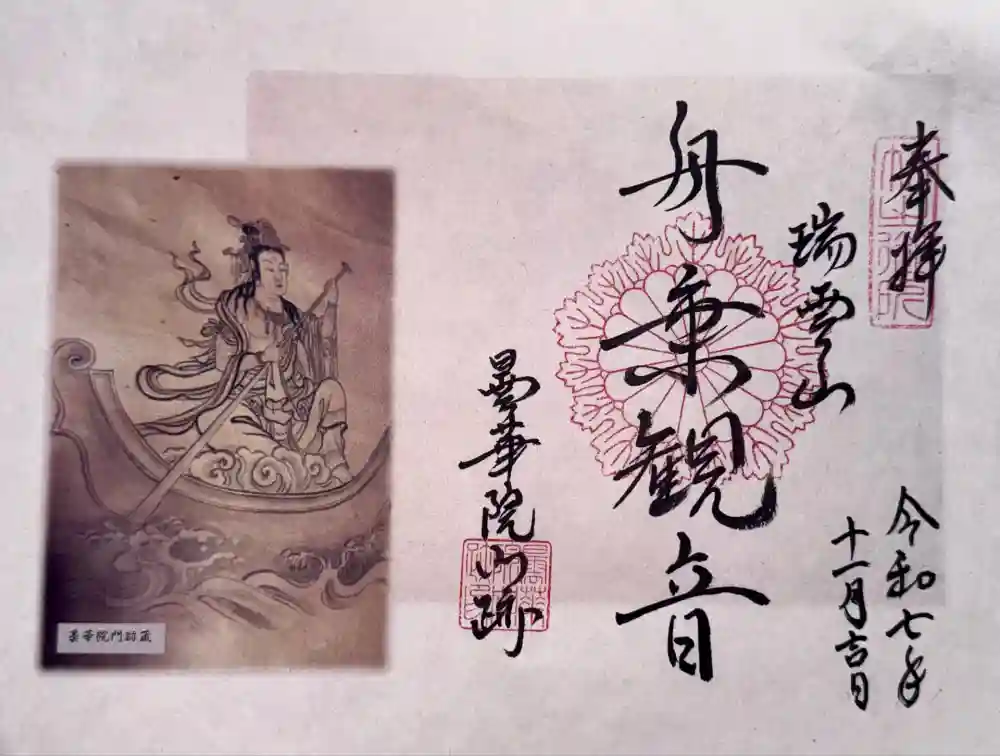 奉拝
瑞雲山
舟乗観音
令和七年
十一月吉日
曇華院山跡
曇華院門跡蔵